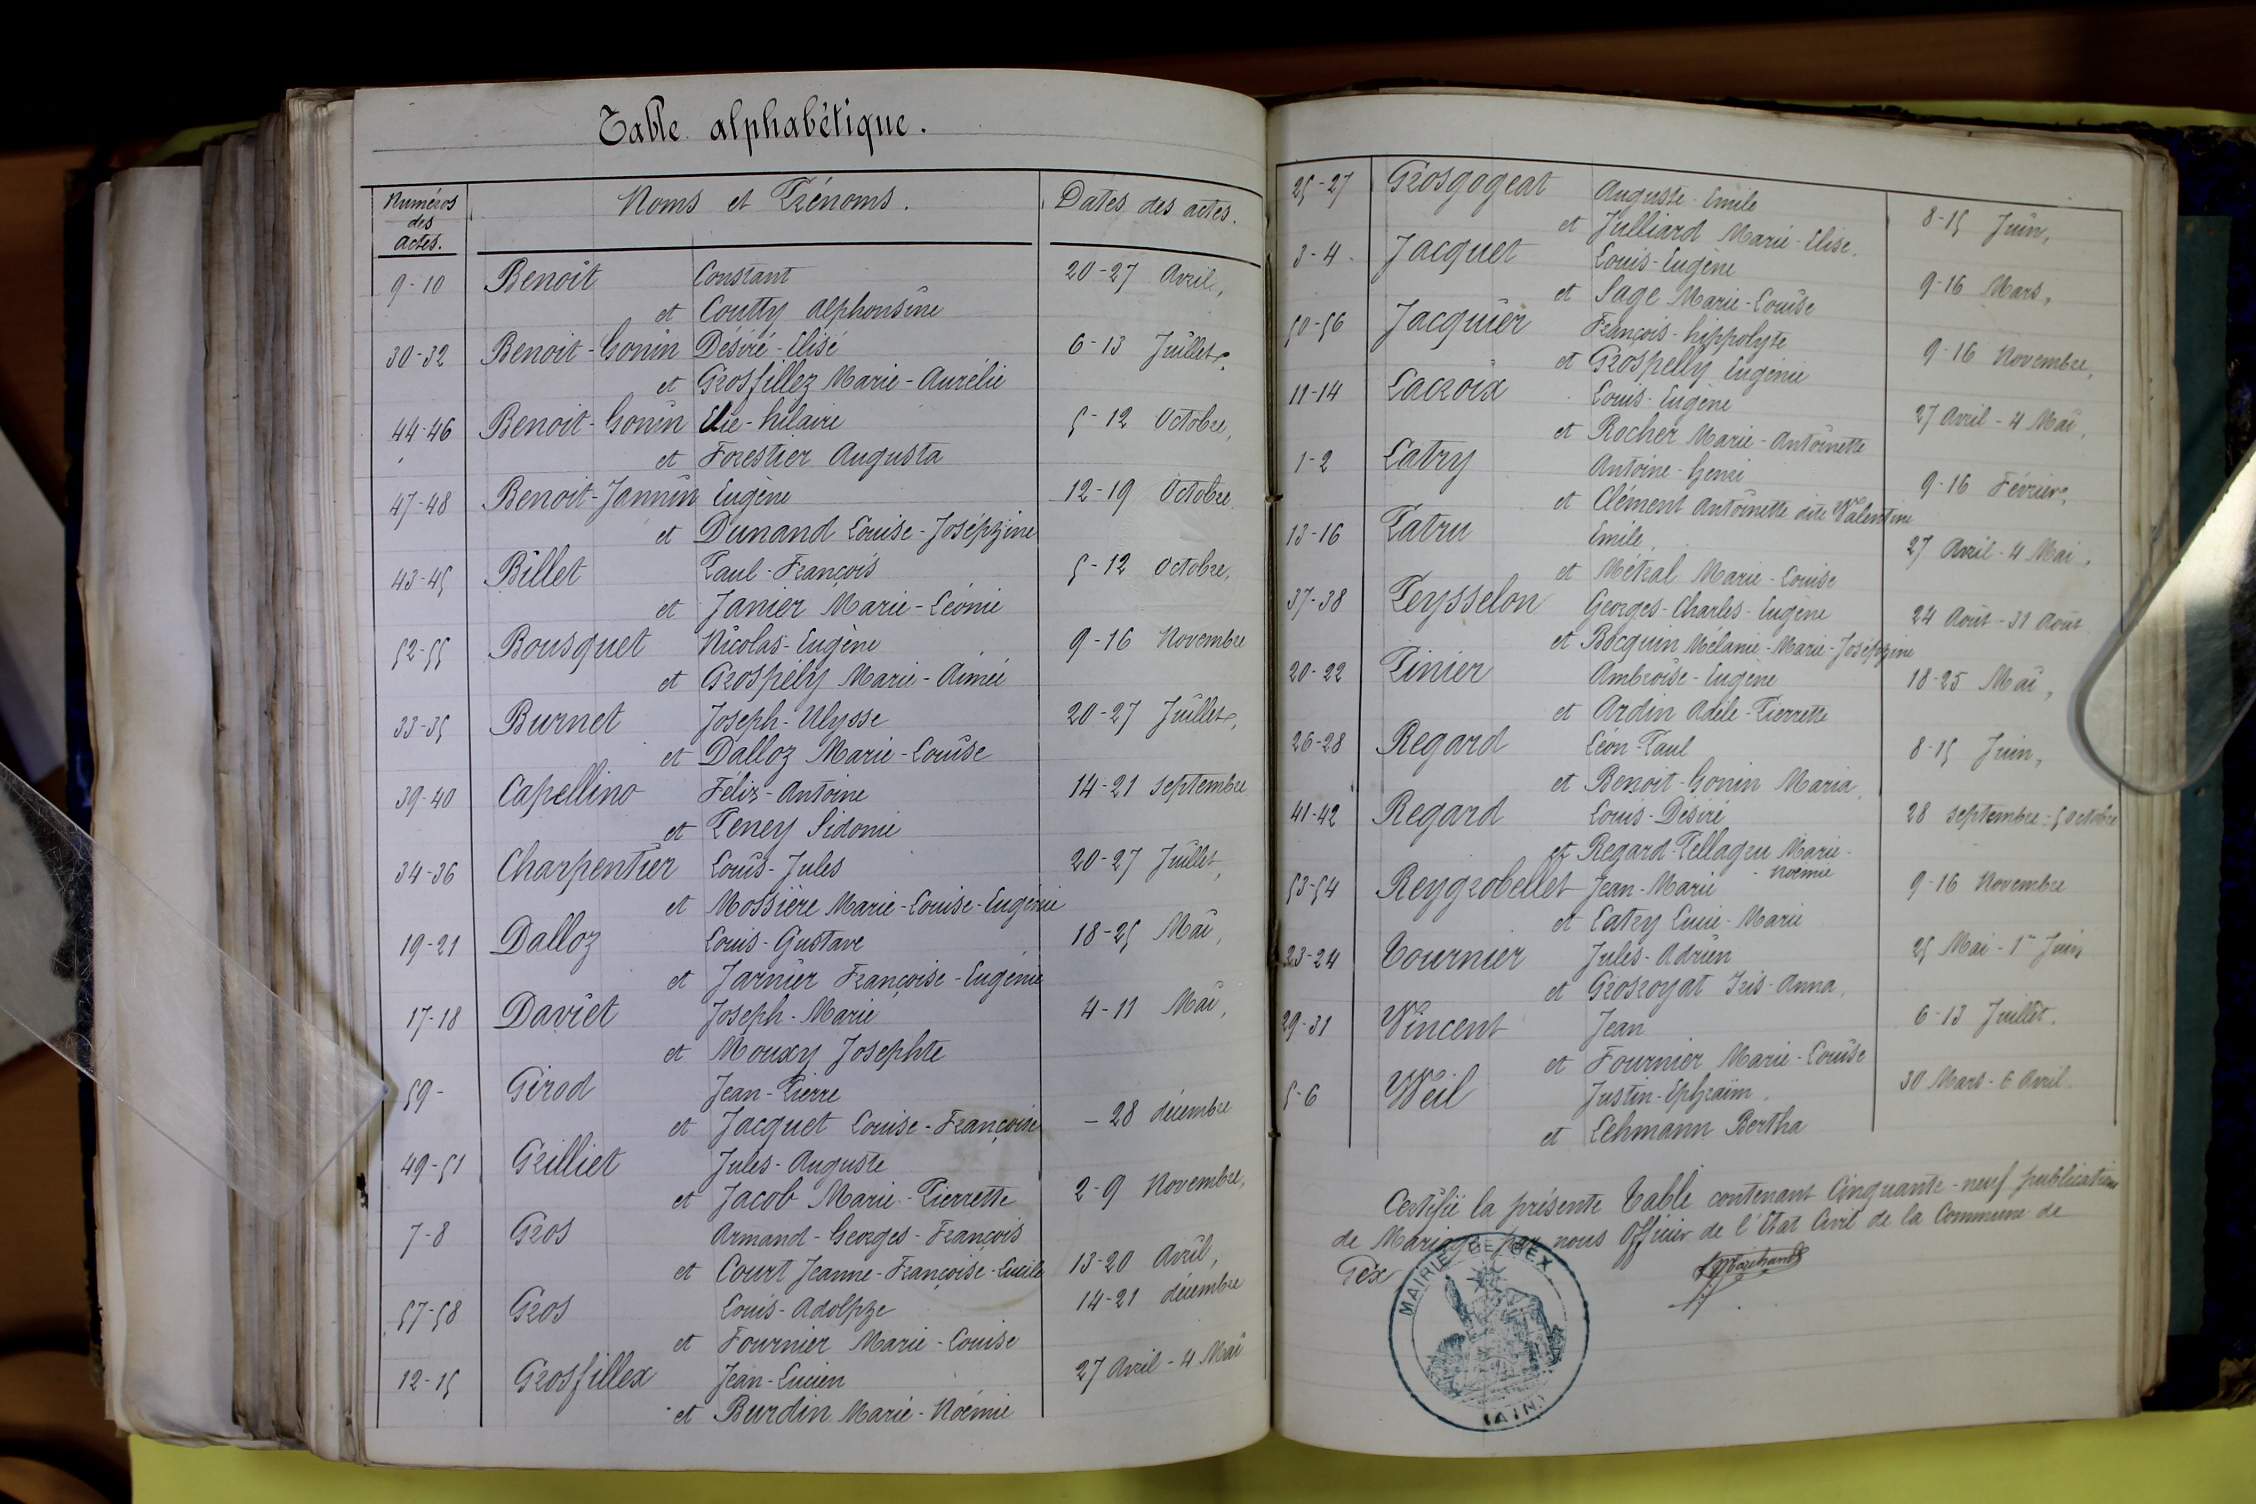 Table alphabétique.
Numéros des Actes. Noms et Prénoms. Dates des actes.
9-10 Benoit Constant 20-27 Avril,
et Coutty Alphonsine
30-32 Benoit-Gonin Désiré-Elisé 6-13 Juillet,
et Grosfillez Marie-Aurélie
44-46 Benoit-Gonin Elie-hilaire 5-12 Octobre,
et Forestier Augusta
47-48 Benoit-Jannin Eugène 12-19 Octobre
et Dunand Louise-Joséphine
43-45 Billet Paul-François 5-12 Octobre,
et Janier Marie-Léonie
52-55 Bousquet Nicolas-Eugène 9-16 Novembre
et Grospély Marie-Aimée
33-35 Burnet Joseph-Ulysse 20-27 Juillet,
et Dalloz Marie-Louise
39-40 Capellino Félix-Antoine 14-21 septembre
et Peney Sidonie
34-36 Charpentier Louis-Jules 20-27 Juillet,
et Mossière Marie-Louise-Eugénie
19-21 Dalloz Louis-Gustave 18-25 Mai,
et Jarnier Françoise-Eugénie
17-18 Daviet Joseph-Marie 4-11 Mai,
et Mouxy Josephte
59- Girod Jean-Pierre
et Jacquet Louise-Françoise - 28 décembre
49-51 Grilliet Jules-Auguste
et Jacob Marie-Pierrette 2-9 Novembre,
7-8 Gros Armand-Georges-François
et Court Jeanne-Françoise-Lucile 13-20 Avril,
57-58 Gros Louis-Adolphe 14-21 décembre
et Fournier Marie-Louise
12-15 Grosfillex Jean-Lucien 27 Avril-4 Mai
et Burdin Marie-Noémie
25-27 Grosgogeat Auguste-Emile 8-15 Juin,
et Julliard Marie-Elise.
3-4. Jacquet Louis-Eugène 9-16 Mars,
et Sage Marie-Louise
50-56 Jacquier François-hippolyte 9-16 Novembre,
et Grospelly Eugénie
11-14 Lacroix Louis-Eugène 27 Avril-4 Mai,
et Rocher Marie-Antoinette
1-2 Latry Antoine-henri 9-16 Février,
et Clément Antoinette dite Valentine
13-16 Patru Emile, 27 Avril-4 Mai,
et Métral Marie-Louise
37-38 Peysselon Georges-Charles-Eugène 24 Août-31 Août
et Bocquin Mélanie-Marie-Joséphine
20-22 Pinier Ambroise-Eugène 18-25 Mai,
et Ardin Adèle-Pierrette
26-28 Regard Léon-Paul 8-15 Juin,
et Benoit-Gonin Maria
41-42 Regard Louis-Désiré 28 septembre-5 octobre
et Regard-Pellagru Marie-
Noémie
53-54 Reygrobellet Jean-Marie 9-16 Novembre
et Latry Marie
23-24 Tournier Jules-Adrien 25 Mai-1er Juin
et Grosroyat Iris-Anna,
29-31 Vincent Jean 6-13 Juillet.
et Fournier Marie-Louise
5-6 Weil Justin-Ephraïm, 30 Mars-6 Avril
et Lehmann Bertha
Certifié la présente Table contenant Cinquante-neuf publications
de Mariage par nous Officier de l'Etat Civil de la Commune de
Gex
MAIRIE DE GEX
(AIN)